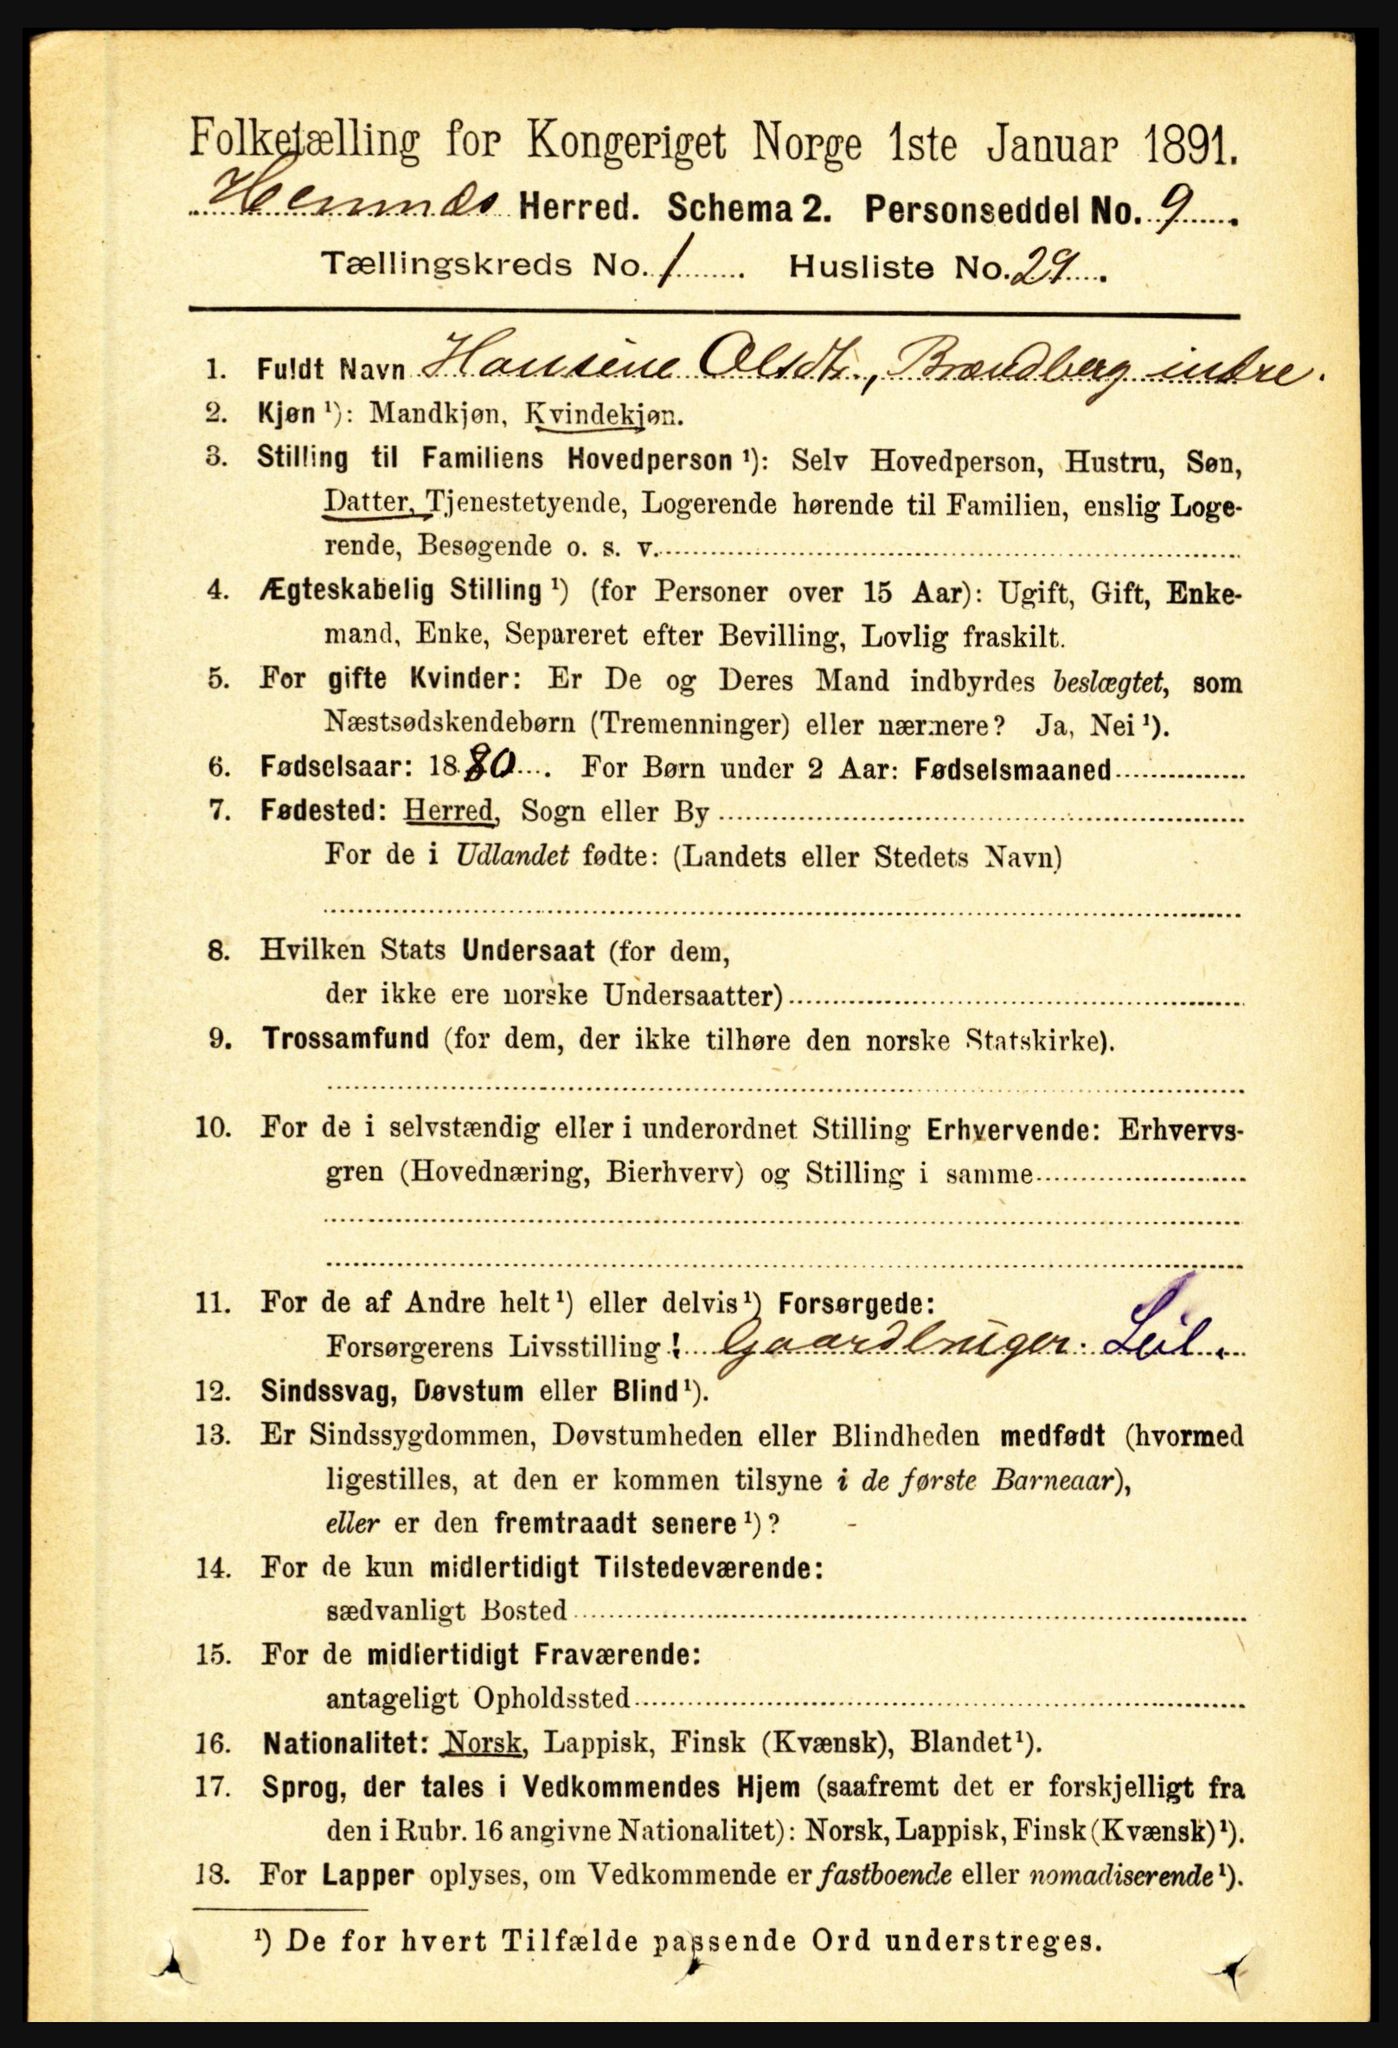 Folketælling for Kongeriget Norge 1ste Januar 1891.
Hemnæs Herred. Schema 2. Personseddel No. 9.
Tællingskreds No. 1. Husliste No. 29.
1. Fuldt Navn Hansine Olsdtr., Brændberg indre.
2. Kjøn ¹): Mandkjøn, Kvindekjøn.
3. Stilling til Familiens Hovedperson ¹): Selv Hovedperson, Hustru, Søn,
Datter, Tjenestetyende, Logerende hørende til Familien, enslig Loge-
rende, Besøgende o. s. v.
4. Ægteskabelig Stilling ¹) (for Personer over 15 Aar): Ugift, Gift, Enke-
mand, Enke, Separeret efter Bevilling, Lovlig fraskilt.
5. For gifte Kvinder: Er De og Deres Mand indbyrdes beslægtet, som
Næstsødskendebørn (Tremenninger) eller nærmere? Ja, Nei ¹).
6. Fødselsaar: 1880. For Børn under 2 Aar: Fødselsmaaned
7. Fødested: Herred, Sogn eller By
For de i Udlandet fødte: (Landets eller Stedets Navn)
8. Hvilken Stats Undersaat (for dem,
der ikke ere norske Undersaatter)
9. Trossamfund (for dem, der ikke tilhøre den norske Statskirke).
10. For de i selvstændig eller i underordnet Stilling Erhvervende: Erhvervs-
gren (Hovednæring, Bierhverv) og Stilling i samme
11. For de af Andre helt ¹) eller delvis ¹) Forsørgede:
Forsørgerens Livsstilling! Gaardbruger. Leil.
12. Sindssvag, Døvstum eller Blind ¹).
13. Er Sindssygdommen, Døvstumheden eller Blindheden medfødt (hvormed
ligestilles, at den er kommen tilsyne i de første Barneaar),
eller er den fremtraadt senere ¹)?
14. For de kun midlertidigt Tilstedeværende:
sædvanligt Bosted
15. For de midlertidigt Fraværende:
antageligt Opholdssted
16. Nationalitet: Norsk, Lappisk, Finsk (Kvænsk), Blandet ¹).
17. Sprog, der tales i Vedkommendes Hjem (saafremt det er forskjelligt fra
den i Rubr. 16 angivne Nationalitet): Norsk, Lappisk, Finsk (Kvænsk) ¹).
18. For Lapper oplyses, om Vedkommende er fastboende eller nomadiserende ¹).
¹) De for hvert Tilfælde passende Ord understreges.